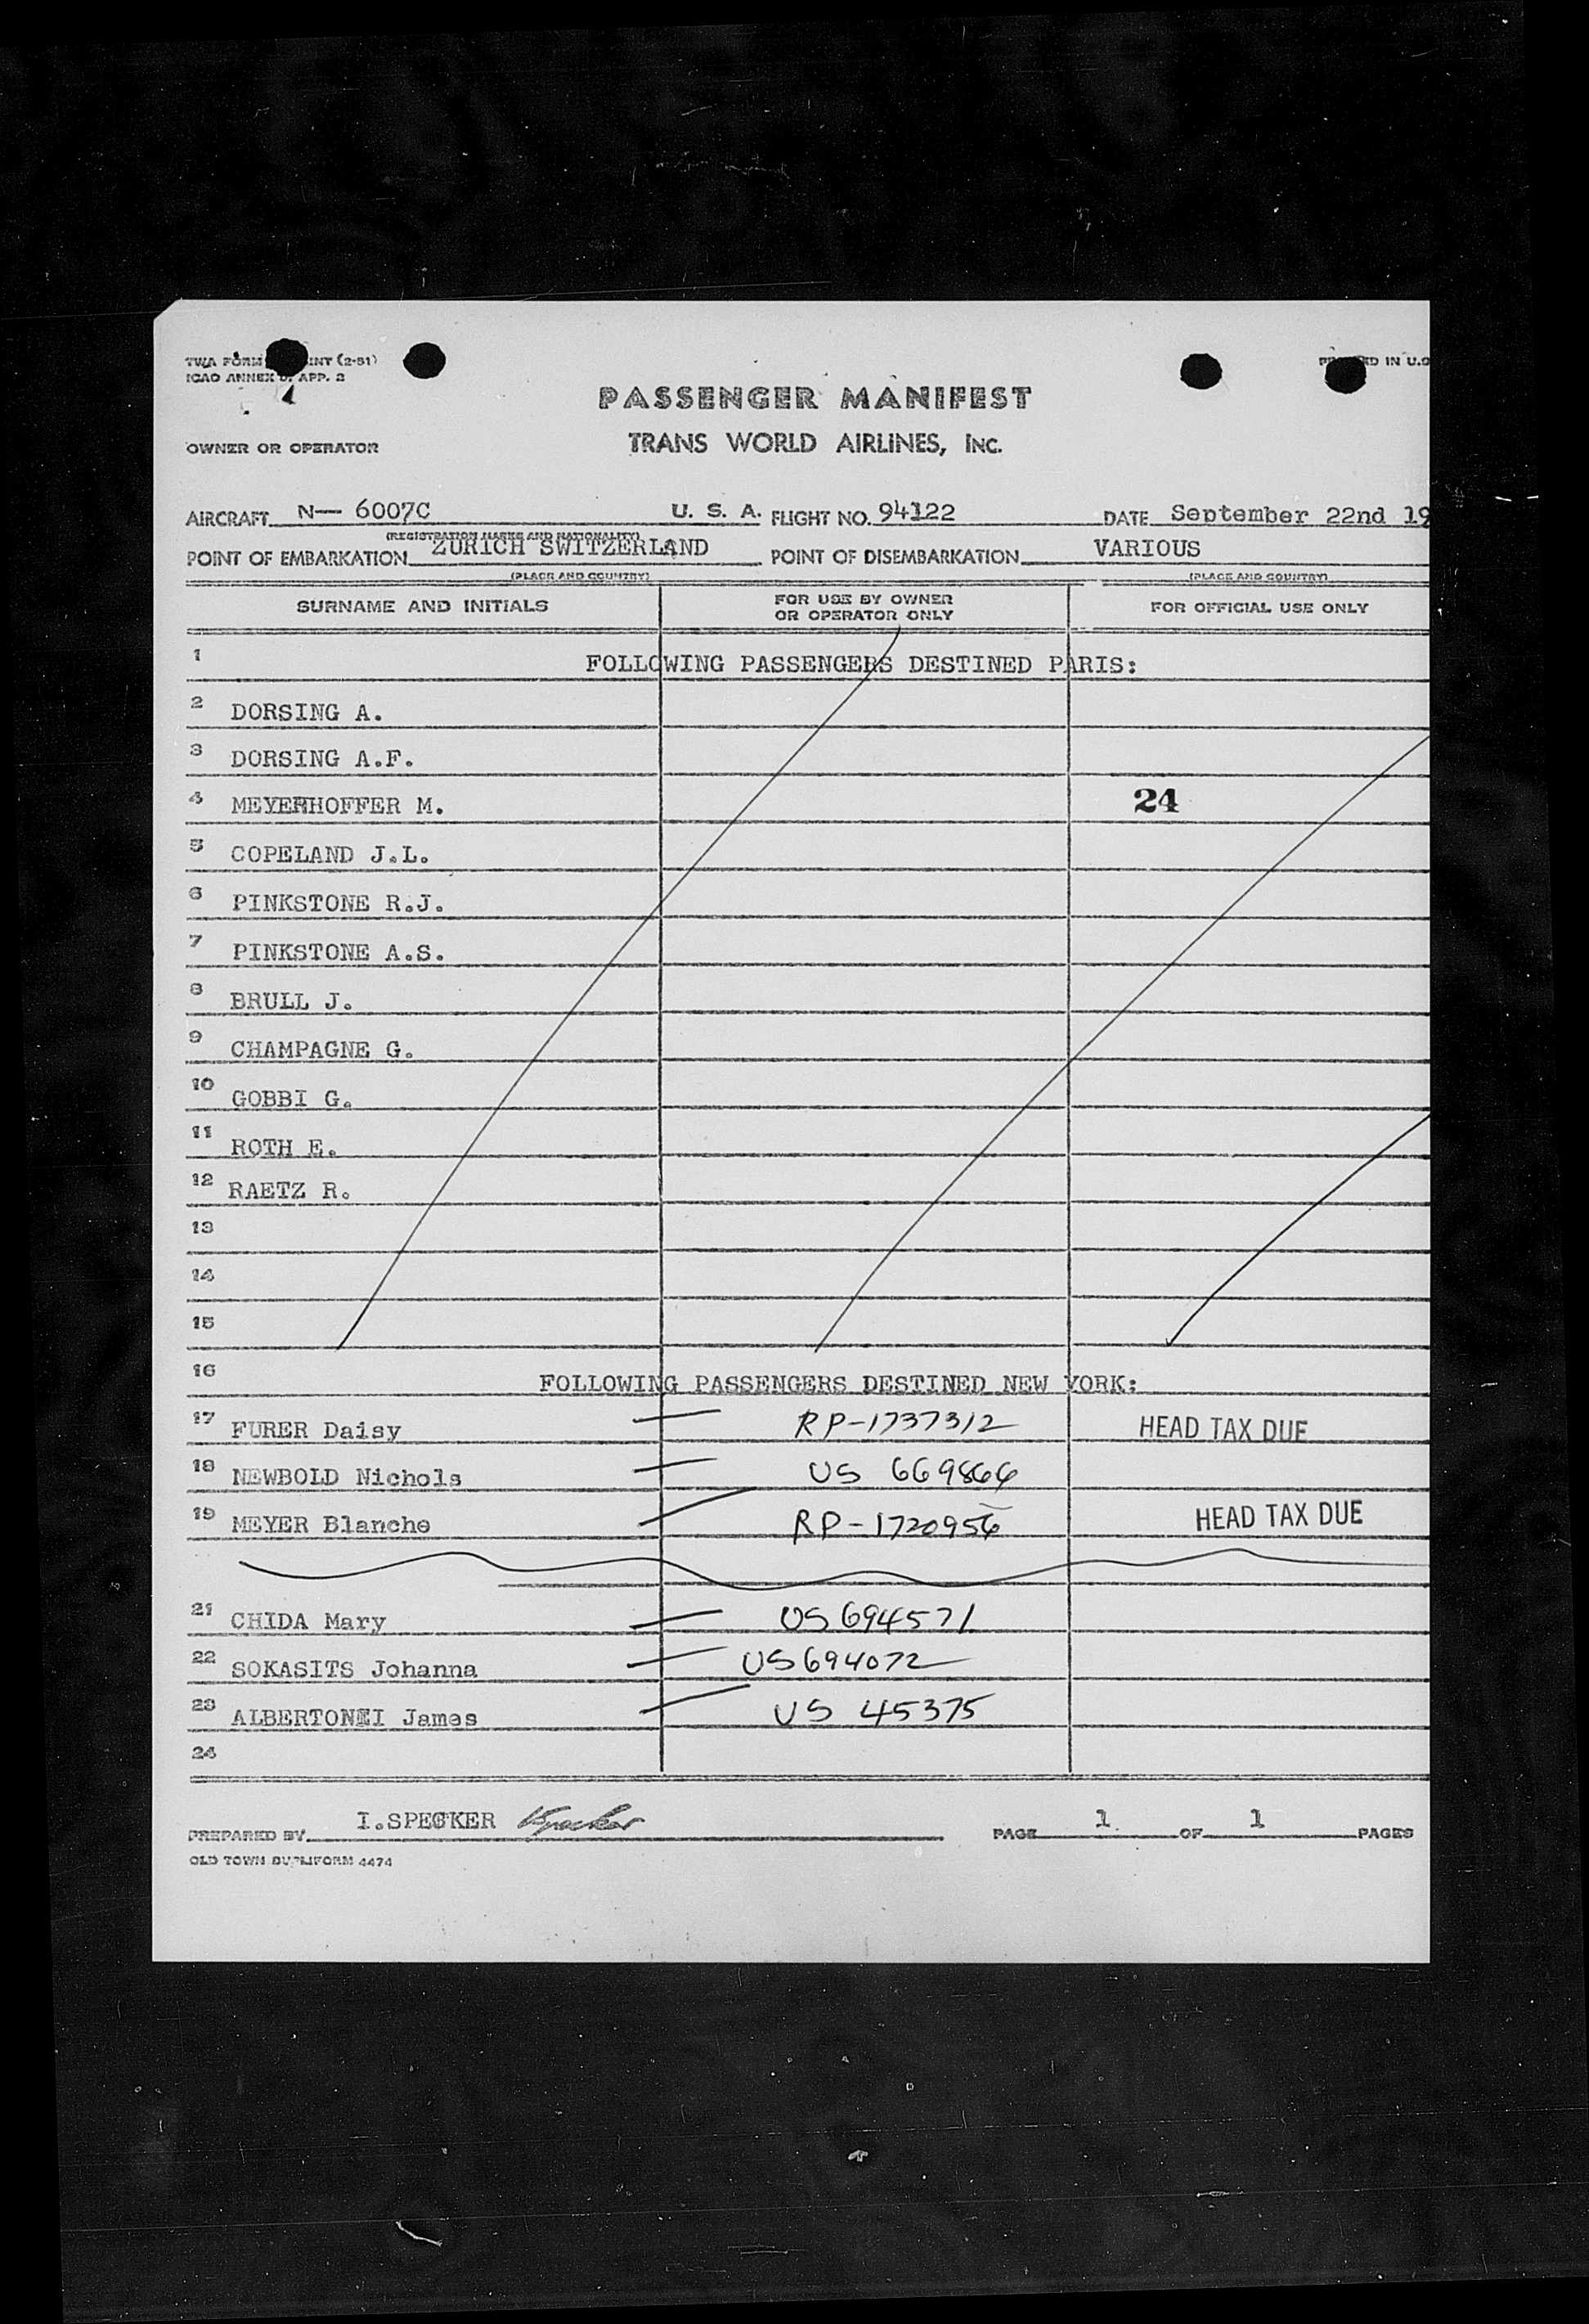 TWA FORM INT (2-51)
ICAO ANNEX 9, APP. 2
PRINTED IN U.S
PASSENGER MANIFEST
OWNER OR OPERATOR TRANS WORLD AIRLINES, INC.
AIRCRAFT N— 6007C U. S. A. FLIGHT NO. 94122 DATE September 22nd 19
(REGISTRATION MARKS AND NATIONALITY)
POINT OF EMBARKATION ZURICH SWITZERLAND POINT OF DISEMBARKATION VARIOUS
(PLACE AND COUNTRY) (PLACE AND COUNTRY)
SURNAME AND INITIALS FOR USE BY OWNER OR OPERATOR ONLY FOR OFFICIAL USE ONLY
1 FOLLOWING PASSENGERS DESTINED PARIS:
2 DORSING A.
3 DORSING A.F.
4 MEYERHOFFER M. 24
5 COPELAND J.L.
6 PINKSTONE R.J.
7 PINKSTONE A.S.
8 BRULL J.
9 CHAMPAGNE G.
10 GOBBI G.
11 ROTH E.
12 RAETZ R.
13
14
15
16 FOLLOWING PASSENGERS DESTINED NEW YORK:
17 FURER Daisy RP-1737312 HEAD TAX DUE
18 NEWBOLD Nichols US 669866
19 MEYER Blanche RP-1720956 HEAD TAX DUE
21 CHIDA Mary US 694571
22 SOKASITS Johanna US 694072
23 ALBERTONI James US 45375
24
PREPARED BY I.SPECKER Specker PAGE 1 OF 1 PAGES
OLD TOWN DUPLIFORM 4474